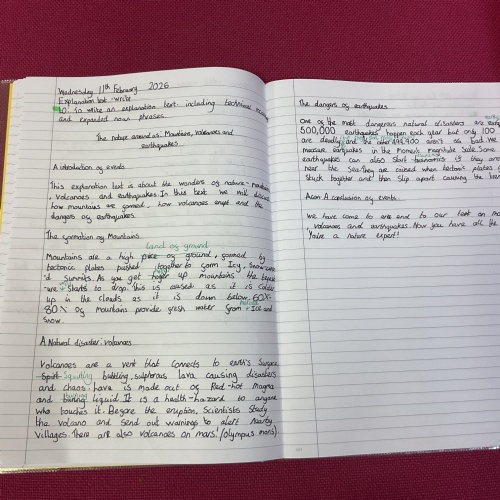 Wednesday 11th February 2026
Explanation text - write
LO: to write an explanation text including technical
and expanded noun phrases.
The nature around us: Mountains, volcanoes and
earthquakes
A introduction of events
This explanation text is about the wonders of nature - mountains
, volcanoes and earthquakes. In this text we will discuss
how mountains are formed, how volcanoes erupt and the
dangers of earthquakes.
The formation of Mountains.
land of ground
Mountains are a high piece of ground, formed by
tectonic plates pushed together to form Icy, Snow-cove
d Summits. As you get up mountains the tempe
-ure starts to drop. This is caused as it is Colder
up in the clouds as it is down below. 60%-
80% of mountains provide fresh water from Ice and
Snow.
A Natural disaster: volcanoes
Volcanoes are a vent that connects to earth's Surface
Spurting bubbling, sulphurous lava causing disasters
and chaos. Lava is made out of Red-hot magma
and liquid. It is a health-hazard to anyone
who touches it. Before the eruption, Scientists Study
the volcano and send out warnings to alert nearby
Villages. There are also volcanoes on mars! (olympus mons).
The dangers of earthquakes
One of the most dangerous natural disasters are
500,000 earthquakes happen each year but only 100
are deadly and the other 499,900 aren't as bad. We
measure earquakes in the moment magnitude scale. Some
earthquakes can also start tsunamis if they are
near the Sea. They are caused when tectonic plates
stuck together and then slip apart causing the
A conclusion of events:
We have come to are end to our text on mo
, volcanoes and earthquakes. Now you have all the
You're a nature expert!